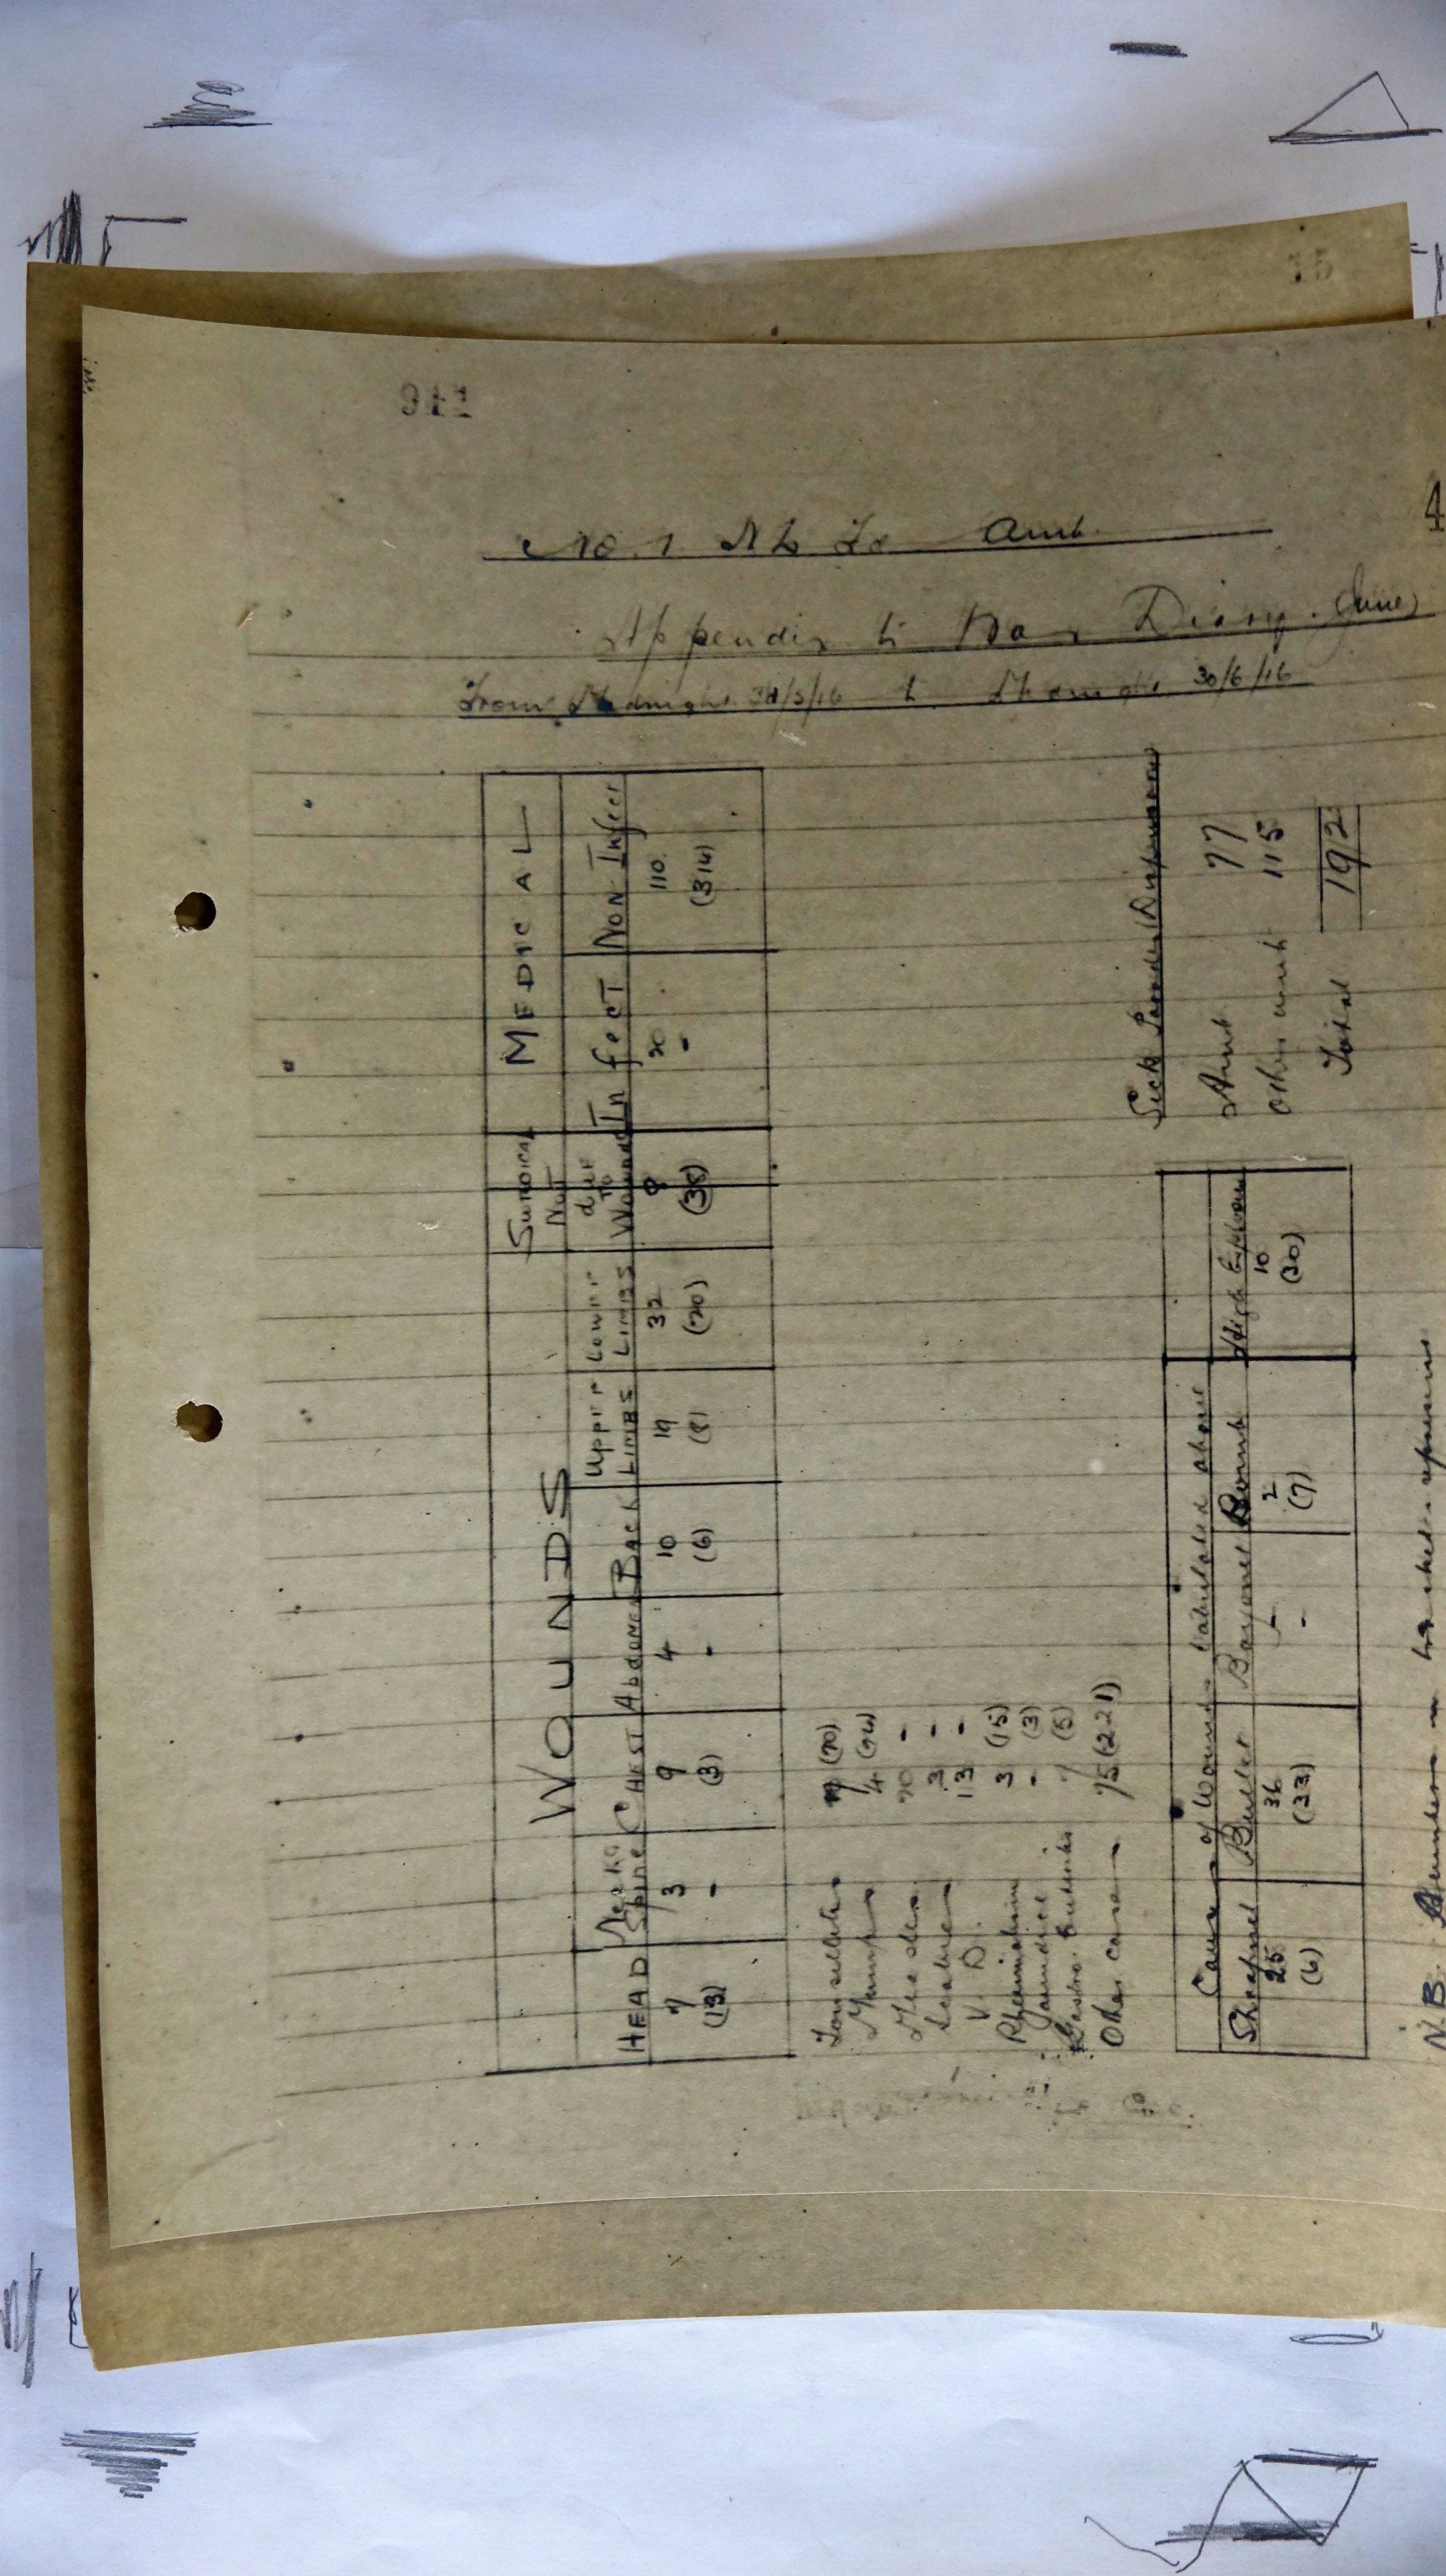 15
911
4
No. 1 NZ Fd Amb.
Appendix to War Diary. (June)
From Midnight 31/5/16 to Midnight 30/6/16
WOUNDS SURGICAL MEDICAL
NOT
HEAD Neck & Spine CHEST Abdomen Back Upper LIMBS Lower LIMBS due to Wounds InfecT Non-Infect
7 3 9 4 10 19 32 8 20 110
(13) - (3) - (6) (8) (20) (38) - (314)
Tonsillitis 7 (70)
Mumps 4
Measles 20 -
3 -
V. D. 13 -
Rheumatism 3 (15)
Jaundice - (3)
Gastro. Enteritis 7 (5)
Other cases 75 (221)
Sick Parades (Dispensary)
Amb. 77
Other units 115
Total 192
Causes of Wounds tabulated above
Shrapnel Bullet Bayonet Bomb High Explosive
25 36 - 2 10
(6) (33) - (7) (30)
N.B. Numbers in brackets represent